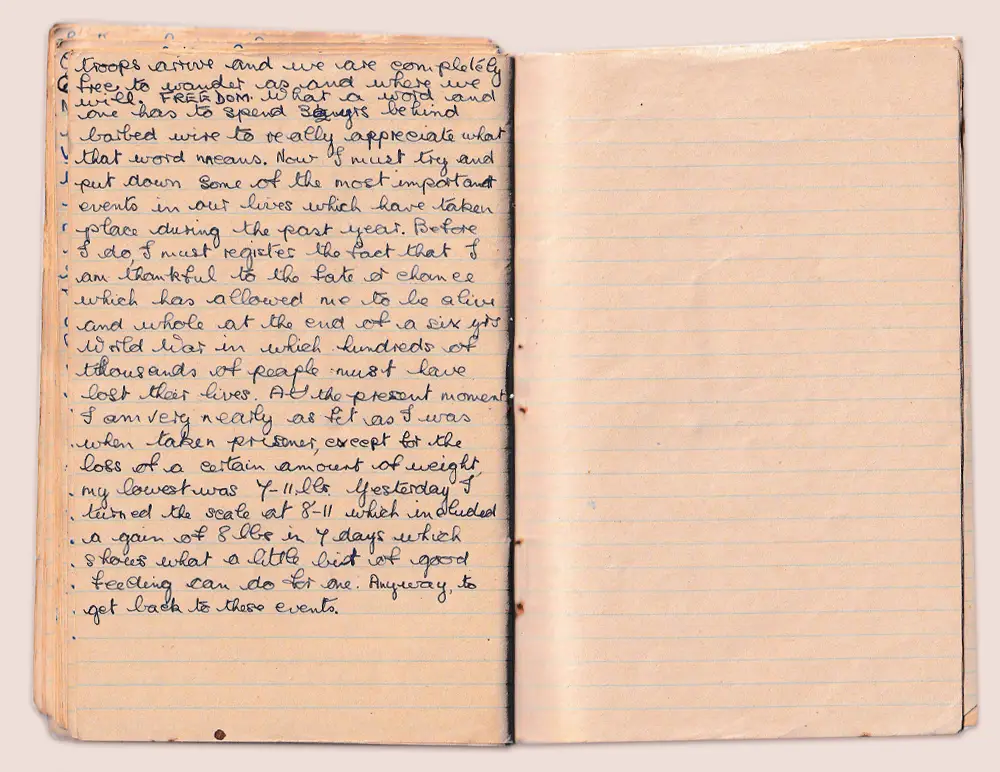 troops arrive and we are completely
free to wander as and where we
will. FREEDOM. What a word and
one has to spend 3½ yrs behind
barbed wire to really appreciate what
that word means. Now I must try and
put down some of the most important
events in our lives which have taken
place during the past year. Before
I do, I must register the fact that I
am thankful to the fate or chance
which has allowed me to be alive
and whole at the end of a six yrs
World War in which hundreds of
thousands of people must have
lost their lives. At the present moment
I am very nearly as fit as I was
when taken prisoner, except for the
loss of a certain amount of weight,
my lowest was 7-11 lbs. Yesterday I
turned the scale at 8-11 which included
a gain of 8 lbs in 7 days which
shows what a little bit of good
feeding can do for one. Anyway, to
get back to these events.